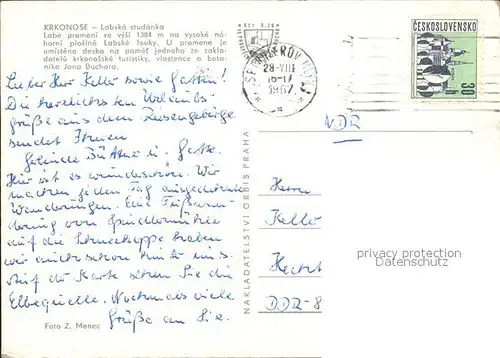 KRKONOŠE – Labská studánka
Labe pramení ve výši 1384 m na vysoké ná-
horní plošině Labské louky. U pramene je
umístěna deska na paměť jednoho ze zakla-
datelů krkonošské turistiky, vlastence a bota-
nika Jana Buchara.
Lieber Herr Keller sowie Gattin!
Die herzlichsten Urlaubs-
grüße aus dem Riesengebirge
sendet Ihnen
Gelinde Büttner u. Gatte.
Hier ist es wunderschön. Wir
machen jeden Tag ausgedehnte
Wanderungen. Die Fußwan-
derung von Spindlermühle
auf die Schneekoppe haben
wir auch schon hinter uns.
Auf der Karte sehen Sie die
Elbequelle. Nochmals viele
Grüße an Sie.
Foto Z. Menec
NAKLADATELSTVÍ ORBIS PRAHA
ŠPINDLERŮV MLÝN
28-VIII
16-17
1967
ČESKOSLOVENSKO
30 h
NDR
Herrn
Keller
DDR-8
privacy protection
Datenschutz